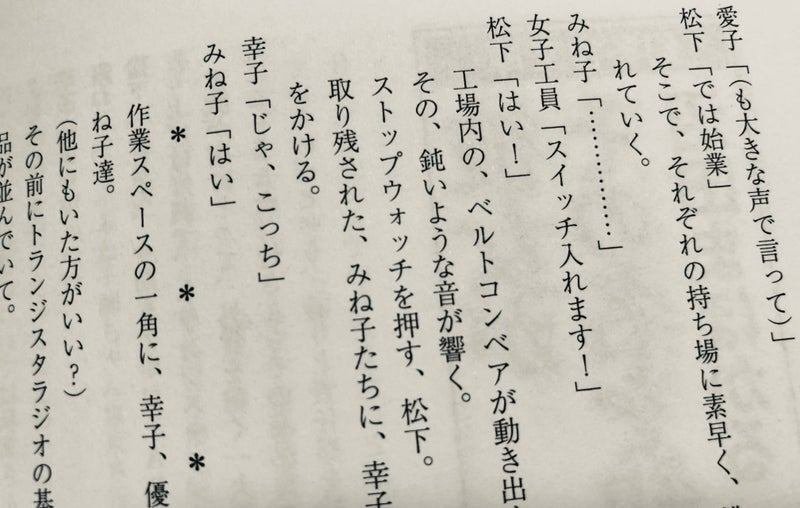 愛子「(も大きな声で言って)」
松下「では始業」
そこで、それぞれの持ち場に素早く、
れていく。
みね子「……………」
女子工員「スイッチ入れます!」
松下「はい!」
工場内の、ベルトコンベアが動き出
その、鈍いような音が響く。
ストップウォッチを押す、松下。
取り残された、みね子たちに、幸子
をかける。
幸子「じゃ、こっち」
みね子「はい」
* * *
作業スペースの一角に、幸子、優
ね子達。
(他にもいた方がいい?)
その前にトランジスタラジオの基
品が並んでいて。